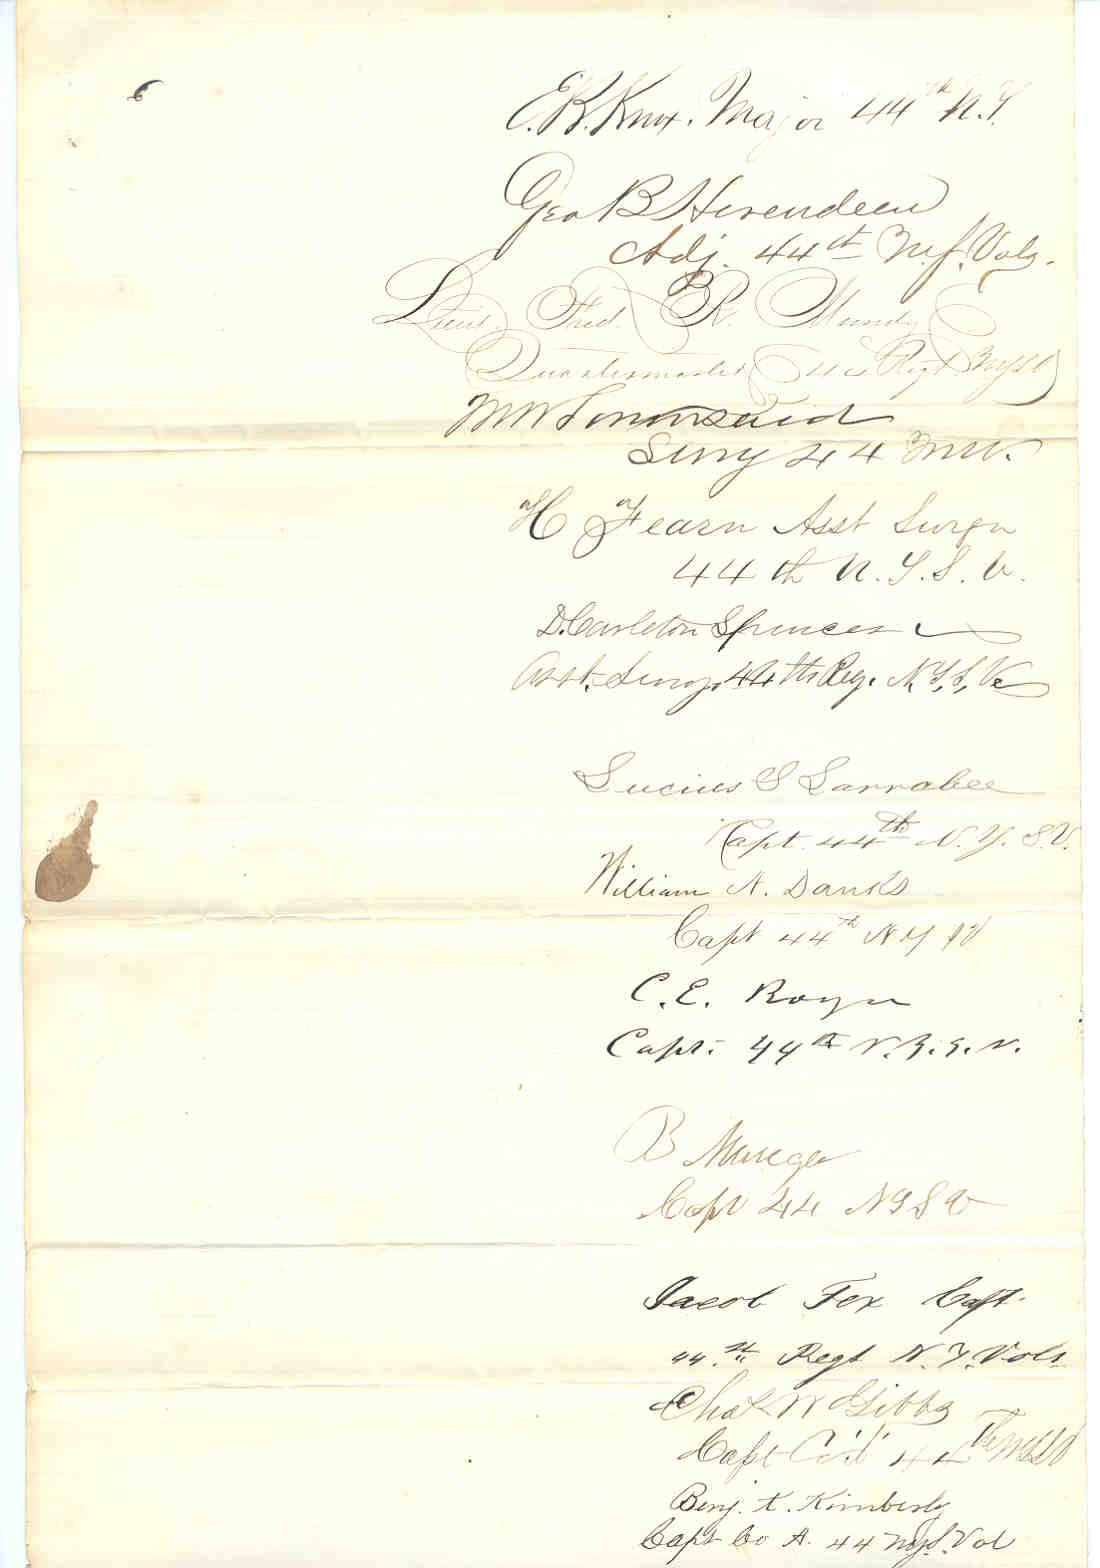 E.B. Knox. Major 44th N.Y.
Geo B Herendeen
Adj. 44th N.Y. Vols.
Lieut. Fred. R. Mundy
Quartermaster 44 Regt NYSV
M W Townsend
Surg 44 NYV.
H Fearn Asst Surgn
44th N.Y.S.V.
D. Carleton Spencer
Asst. Surg. 44th Reg. N.Y.S.V.
Lucius S Larrabee
Capt. 44th N.Y.S.V.
William N. Danks
Capt 44th NYV
C.E. Royce
Capt. 44th N.Y.S.V.
B Munger
Capt 44 NYSV
Jacob Fox Capt.
44th Regt N.Y. Vols
Chas W Gibbs
Capt Co 44th NYSV
Benj. K. Kimberly
Capt Co A. 44 NYS. Vol